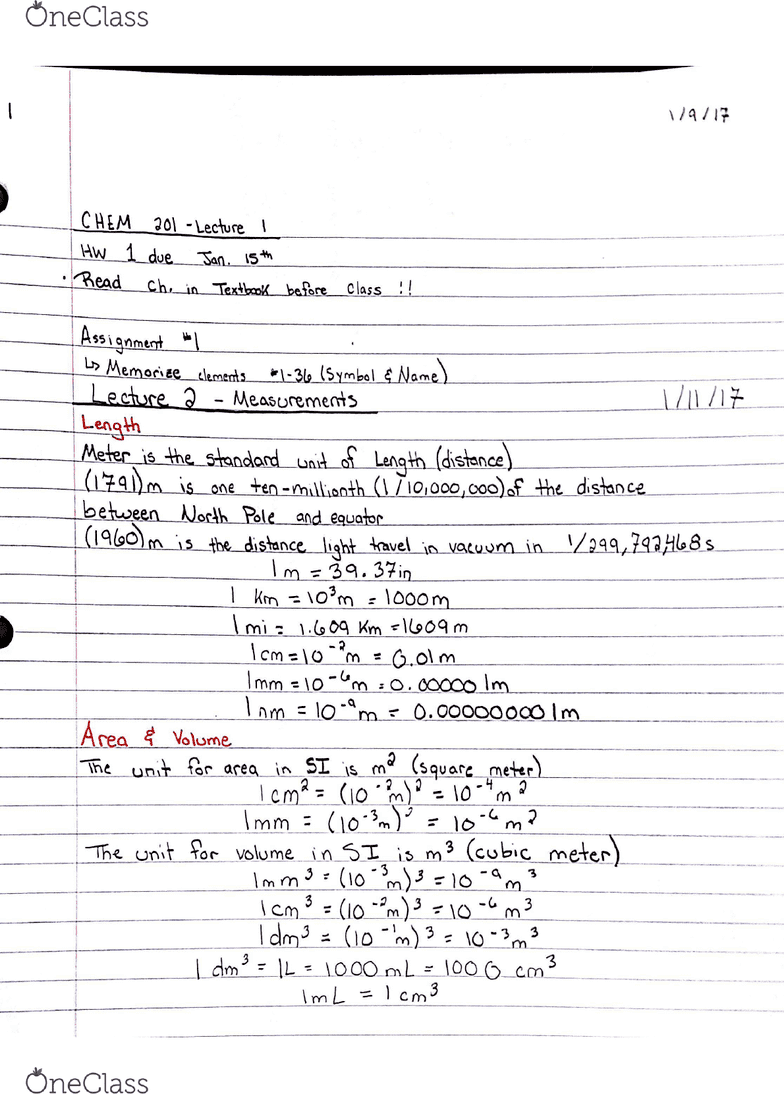 OneClass
1
1/9/17
CHEM 201 - Lecture 1
HW 1 due Jan. 15th
· Read Ch. in Textbook before Class !!
Assignment #1
↳ Memorize elements #1-36 (Symbol & Name)
Lecture 2 - Measurements 1/11/17
Length
Meter is the standard unit of Length (distance)
(1791)m is one ten-millionth (1/10,000,000) of the distance
between North Pole and equator
(1960)m is the distance light travel in vacuum in 1/299,792,468 s
1 m = 39.37in
1 Km = 10³m = 1000m
1 mi = 1.609 Km = 1609 m
1cm = 10⁻²m = 0.01m
1mm = 10⁻⁶m = 0.000001m
1nm = 10⁻⁹m = 0.000000001m
Area & Volume
The unit for area in SI is m² (square meter)
1cm² = (10⁻²m)² = 10⁻⁴m²
1mm = (10⁻³m)² = 10⁻⁶m²
The unit for volume in SI is m³ (cubic meter)
1mm³ = (10⁻³m)³ = 10⁻⁹m³
1cm³ = (10⁻²m)³ = 10⁻⁶m³
1dm³ = (10⁻¹m)³ = 10⁻³m³
1 dm³ = 1L = 1000 mL = 1000 cm³
1mL = 1cm³
OneClass